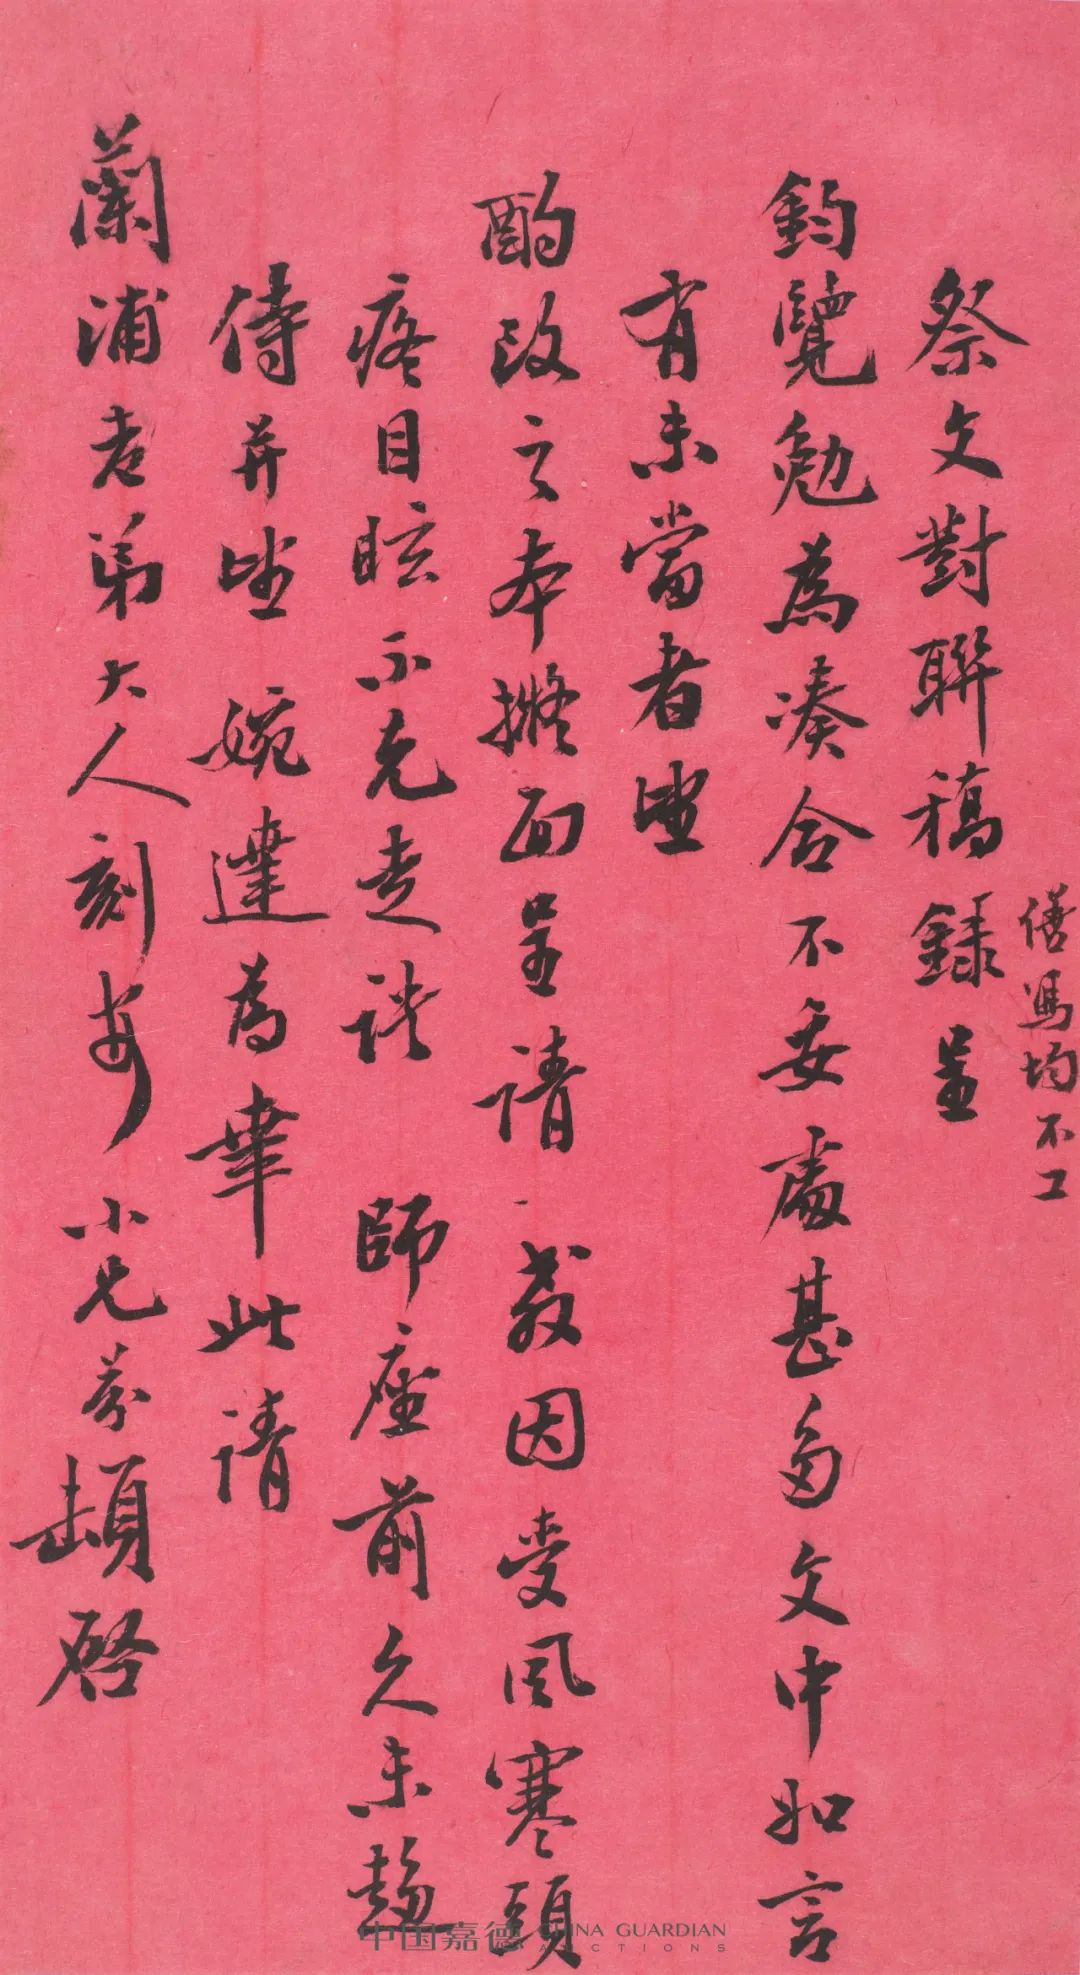 祭文對聯稿錄呈
繕寫均不工
鈞覽勉為湊合不妥處甚多文中如言
有未當者望
酌改之本擬面呈請教因受風寒頭
疼目眩不克走談 師座前久未趨
侍并望婉達為幸此請
蘭浦老弟大人刻安 小兄芬頓啓
中国嘉德 CHINA GUARDIAN
AUCTIONS